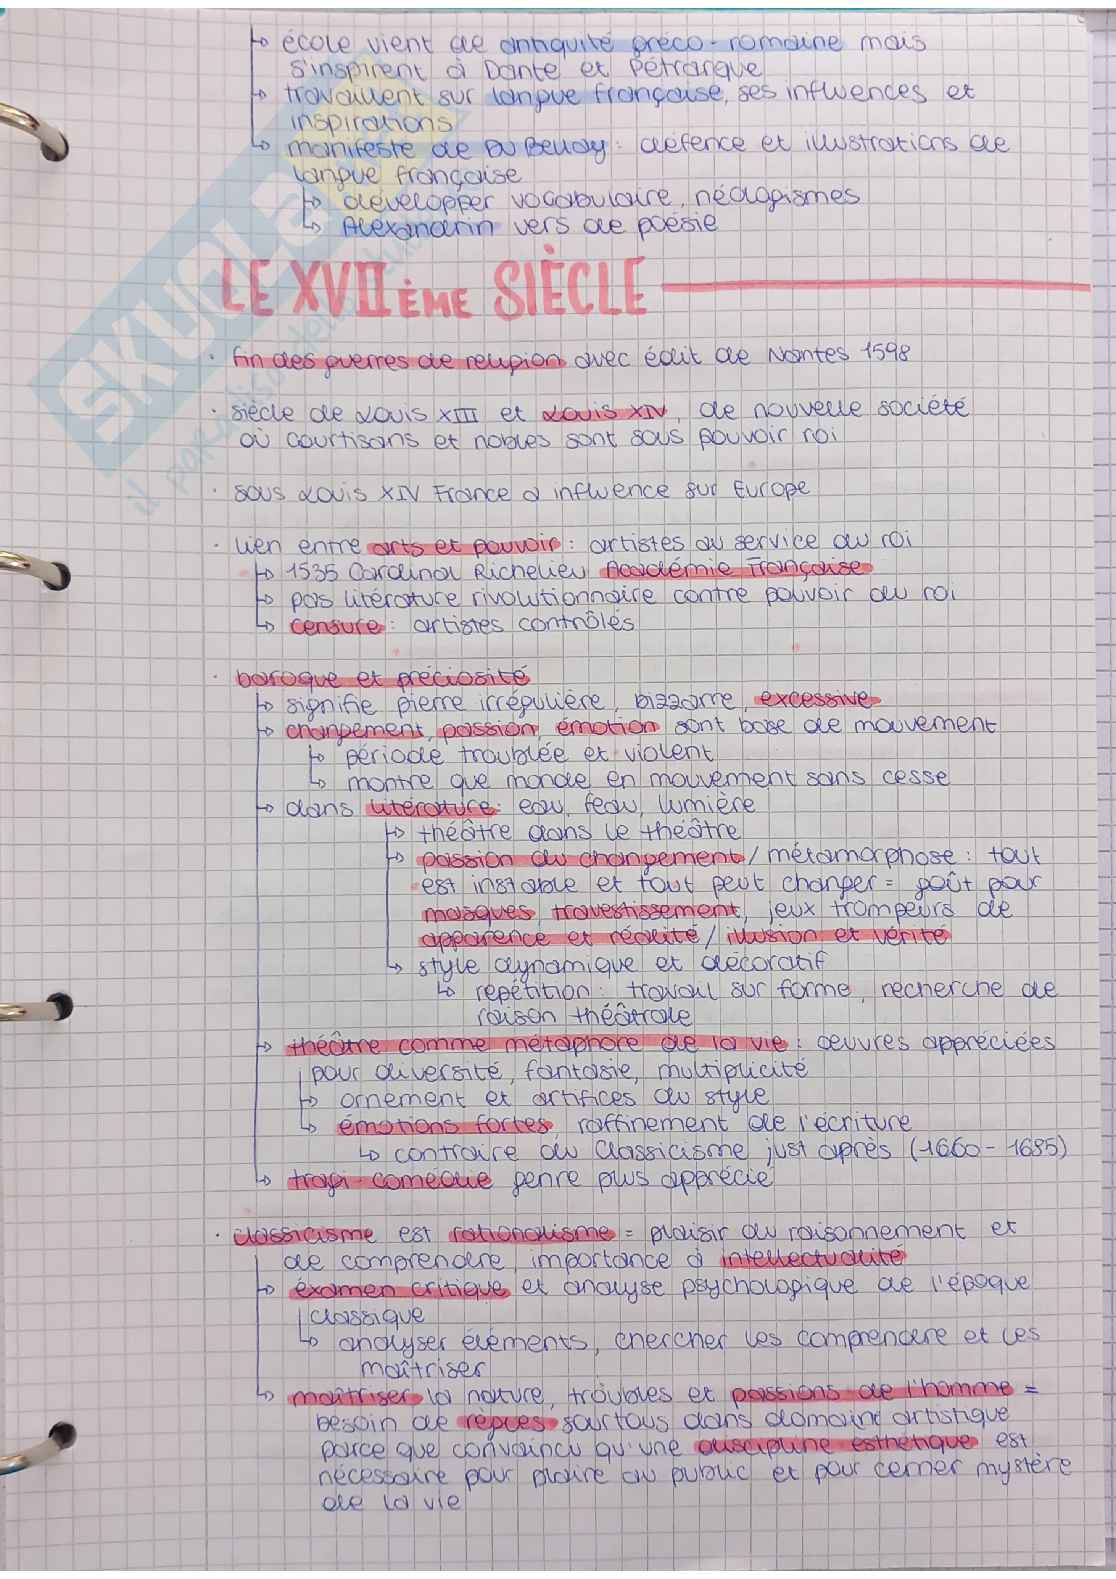 ↳ école vient de antiquité gréco-romaine mais
s'inspirent à Dante et Pétrarque
↳ travaillent sur langue française, ses influences et
inspirations
↳ manifeste de Du Bellay: défence et illustrations de
langue française
↳ développer vocabulaire, néologismes
↳ Alexandrin vers de poésie
LE XVIIÈME SIÈCLE
· fin des guerres de religion avec édit de Nantes 1598
· siècle de Louis XIII et Louis XIV, de nouvelle société
où courtisans et nobles sont sous pouvoir roi
· sous Louis XIV France a influence sur Europe
· lien entre arts et pouvoir: artistes au service du roi
↳ 1535 Cardinal Richelieu Académie Française
↳ pas litérature rivolutionnaire contre pouvoir du roi
↳ censure: artistes contrôlés
· baroque et préciosité
↳ signifie pierre irrégulière, bizzarre, excessive
↳ changement, passion, émotion sont base de mouvement
↳ période troublée et violent
↳ montre que monde en mouvement sans cesse
↳ dans litérature: eau, feau, lumière
↳ théâtre dans le théâtre
↳ passion du changement/métamorphose: tout
est instable et tout peut changer = goût pour
masques, travestissement, jeux trompeurs de
apparence et réalité/illusion et vérité
↳ style dynamique et décoratif
↳ repétition: travail sur forme, recherche de
raison théâtrale
↳ théâtre comme métaphore de la vie: œuvres appréciées
pour diversité, fantaisie, multiplicité
↳ ornement et artifices du style
↳ émotions fortes, raffinement de l'écriture
↳ contraire du Classicisme just après (1660-1685)
↳ tragi-comédie genre plus apprécié
· classicisme est rationalisme = plaisir du raisonnement et
de comprendre, importance à intellectualité
↳ éxamen critique et analyse psychologique de l'époque
classique
↳ analyser éléments, chercher les comprendre et les
maîtriser
↳ maîtriser la nature, troubles et passions de l'homme =
besoin de règles surtous dans domaine artistique
parce que convaincu qu'une discipline esthétique est
nécessaire pour plaire au public et pour cerner mystère
de la vie
SKUOLA